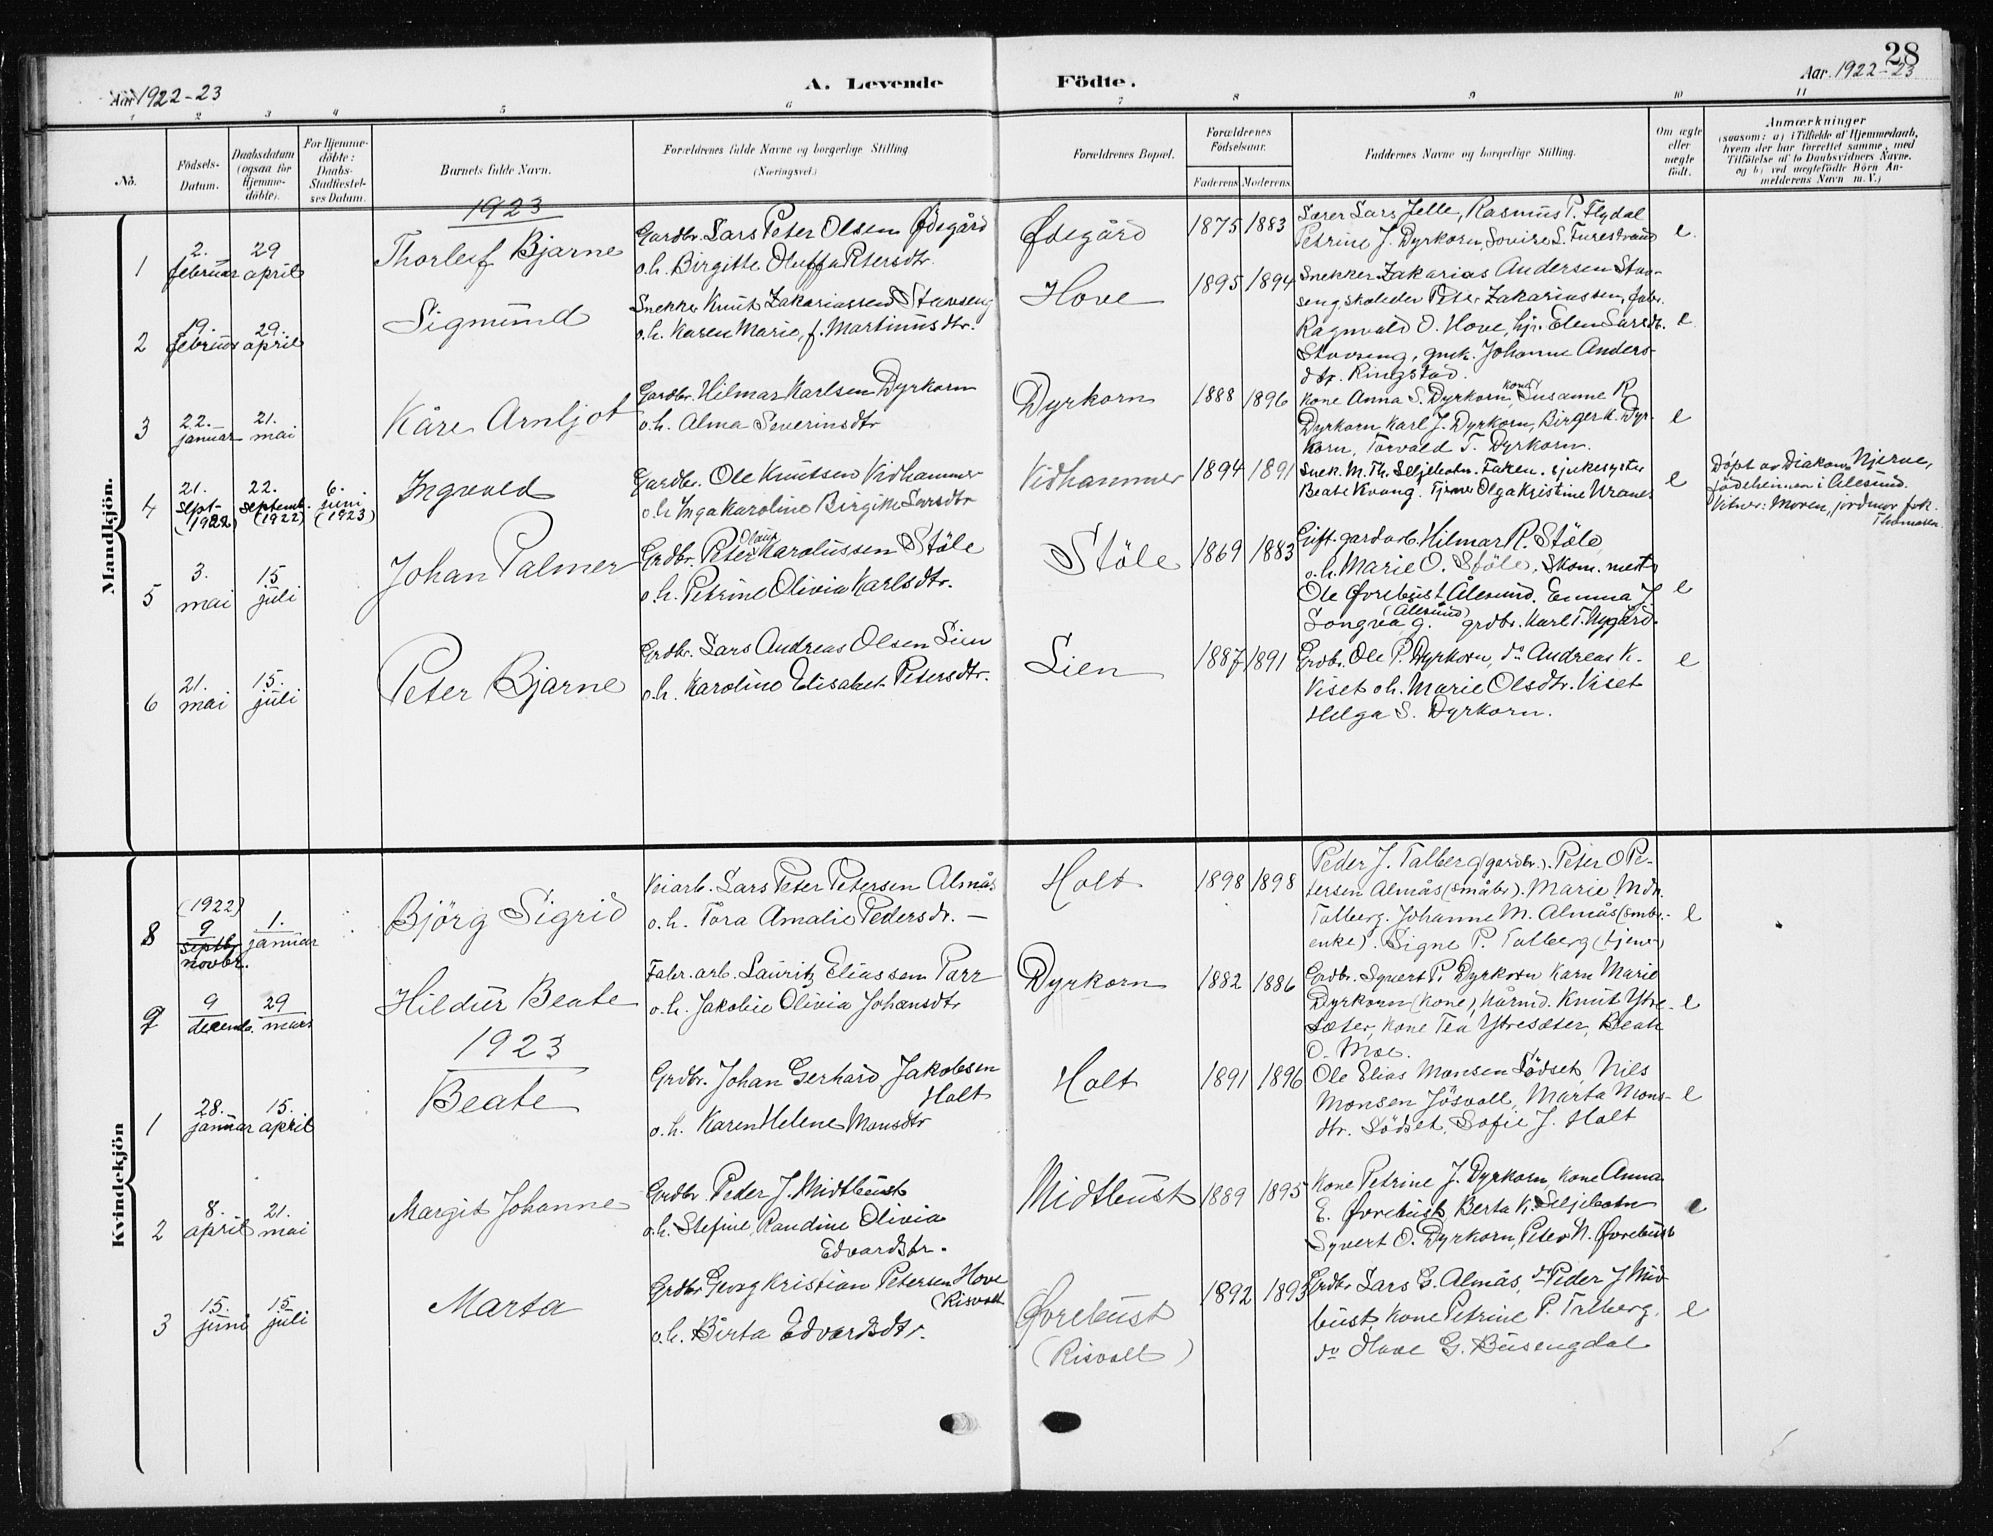 28
Aar 1922-23
A. Levende Födte.
Aar 1922-23
1 2 3 4 5 6 7 8 9 10 11
No.
Födsels-Datum.
Daabsdatum (ogsaa for Hjemmedöbte).
For Hjemmedöbte: Daabs-Stadfæstelses Datum.
Barnets fulde Navn.
Forældrenes fulde Navne og borgerlige Stilling
(Næringsvei.)
Forældrenes Bopæl.
Forældrenes Födselsaar.
Faderens. Moderens.
Faddernes Navne og borgerlige Stilling.
Om ægte eller uægte födt.
Anmærkninger
(saasom: a) i Tilfælde af Hjemmedaab,
hvem der har forrettet samme, med
Tilföielse af to Daabsvidners Navne.
og b) ved uægtefödte Börn An-
melderens Navn m. V.)
Mandkjön.
1923
1
2. februar
29 april
Thorleif Bjarne
Gardbr. Lars Peter Olsen Ødegård
o.h. Birgitte Oluffa Petersdtr.
Ødegård
1875 1883
Lærer Lars Jelle, Rasmus P. Flydal
Petrine J. Dyrkorn, Lovise L. Furestrand
e.
2
19. februar
29. april
Sigmund
Snekker Knut Zakariassen Stavseng
o.h. Karen Marie, f. Martinusdtr.
Hove
1895 1894
Snekker Zakarias Andersen Stav-
seng, skoleder Peter Zakariassen, fabr.
Ragnvald O. Hove, hj. Elen Larsdt.
Stavseng, gmk. Johanne Anders-
dtr. Ringstad.
e
3
22. januar
21. mai
Kåre Arnljot
Gardbr. Hilmar Karlsen Dyrkorn
o.h. Alma Severinsdtr
Dyrkorn
1888 1896
Kone Anna S. Dyrkorn, kone Susanne R
Dyrkorn, Karl J. Dyrkorn, Birger K. Dyr-
korn, Torvald T. Dyrkorn.
e
4
21. sept. (1922)
22. septemb. (1922)
6. juni (1923)
Ingvald
Gardbr. Ole Knutsen Vidhammer
o.h. Inga Karoline Birgitte Larsdtr
Vidhammer
1894 1891
Snek. M. Th. Seljebotn. Faren. sjukesyster
Beate Kvang. Tjener Olga Kristine Uranes
e
Döpt av Diakon Njerve,
födeheimen i Ålesund.
Vitner: Moren, jordmor frk.
Thomasen
5
3. mai
15 juli
Johan Palmer
Grdbr. Peter Olaus Karolussen Stöle
o.h. Petrine Olivia Karlsdtr.
Stöle
1869 1883
Gift. gardarb. Hilmar R. Stöle,
o.h. Marie O. Stöle, Skom. mestr
Ole Øvrebust Ålesund. Emma J
Songva g. (Ålesund) grdbr. Karl T. Nygård.
e
6
21. mai
15. juli
Peter Bjarne
Grdbr. Lars Andreas Olsen Lien
o.h. Karoline Elisabet Petersdtr.
Lien
1887 1891
Grdbr. Ole P. Dyrkorn, do Andreas K.
Viset o.h. Marie Olsdtr. Viset
Helga S. Dyrkorn.
e
Kvindekjön
8
(1922)
9 septb. novbr.
1. januar
Björg Sigrid
Keiarb. Lars Peter Petersen Almås
o.h. Tora Amalie Pedersdr. —
Holt
1898 1898
Peder J. Talberg (gardbr.). Peter O Pe-
tersen Almås (småbr). Marie Mdn.
Talberg. Johanne M. Almås (smbr.-
enke). Signe P. Talberg (tjener)
e
9
9 decemb.
29 mars
Hildur Beate
Fabr. arb. Lauritz Eliassen Parr
o.h. Jakobie Olivia Johansdtr
Dyrkorn
1882 1886
Grdbr. Syvert P. Dyrkorn Karn Marie
Dyrkorn (kone), Kårmd. Knut Ytre-
sæter, kone Tea Ytresæter, Beate
O. Moe.
e
1923
1
28. januar
15. april
Beate
Grdbr. Johan Gerhard Jakobsen
Holt
o.h. Karen Helene Monsdtr
Holt
1891 1896
Ole Elias Monsen Lödset, Nils
Monsen Jösvoll, Marta Mons-
dtr. Lödset, Sofie J. Holt
e
2
8. april
21. mai
Margit Johanne
Grdbr. Peder J. Midtbust
o.h. Stefine Randine Olivia
Edvardsdtr.
Midtbust
1889 1895
Kone Petrine J. Dyrkorn, kone Anna
E. Øvrebust, Berta K. Seljebotn
Syvert O. Dyrkorn, Peter N. Øvrebust
e
3
15. juni
15. juli
Marta
Grdbr. Georg Kristian Petersen Hove
(Risvolt
o.h. Birta Edvardsdtr.
Øvrebust
(Risvolt)
1892 1893
Grdbr Lars G. Almås, do Peder J Mid-
bust, kone Petrine P. Talberg,
do Have G. Busengdal
e